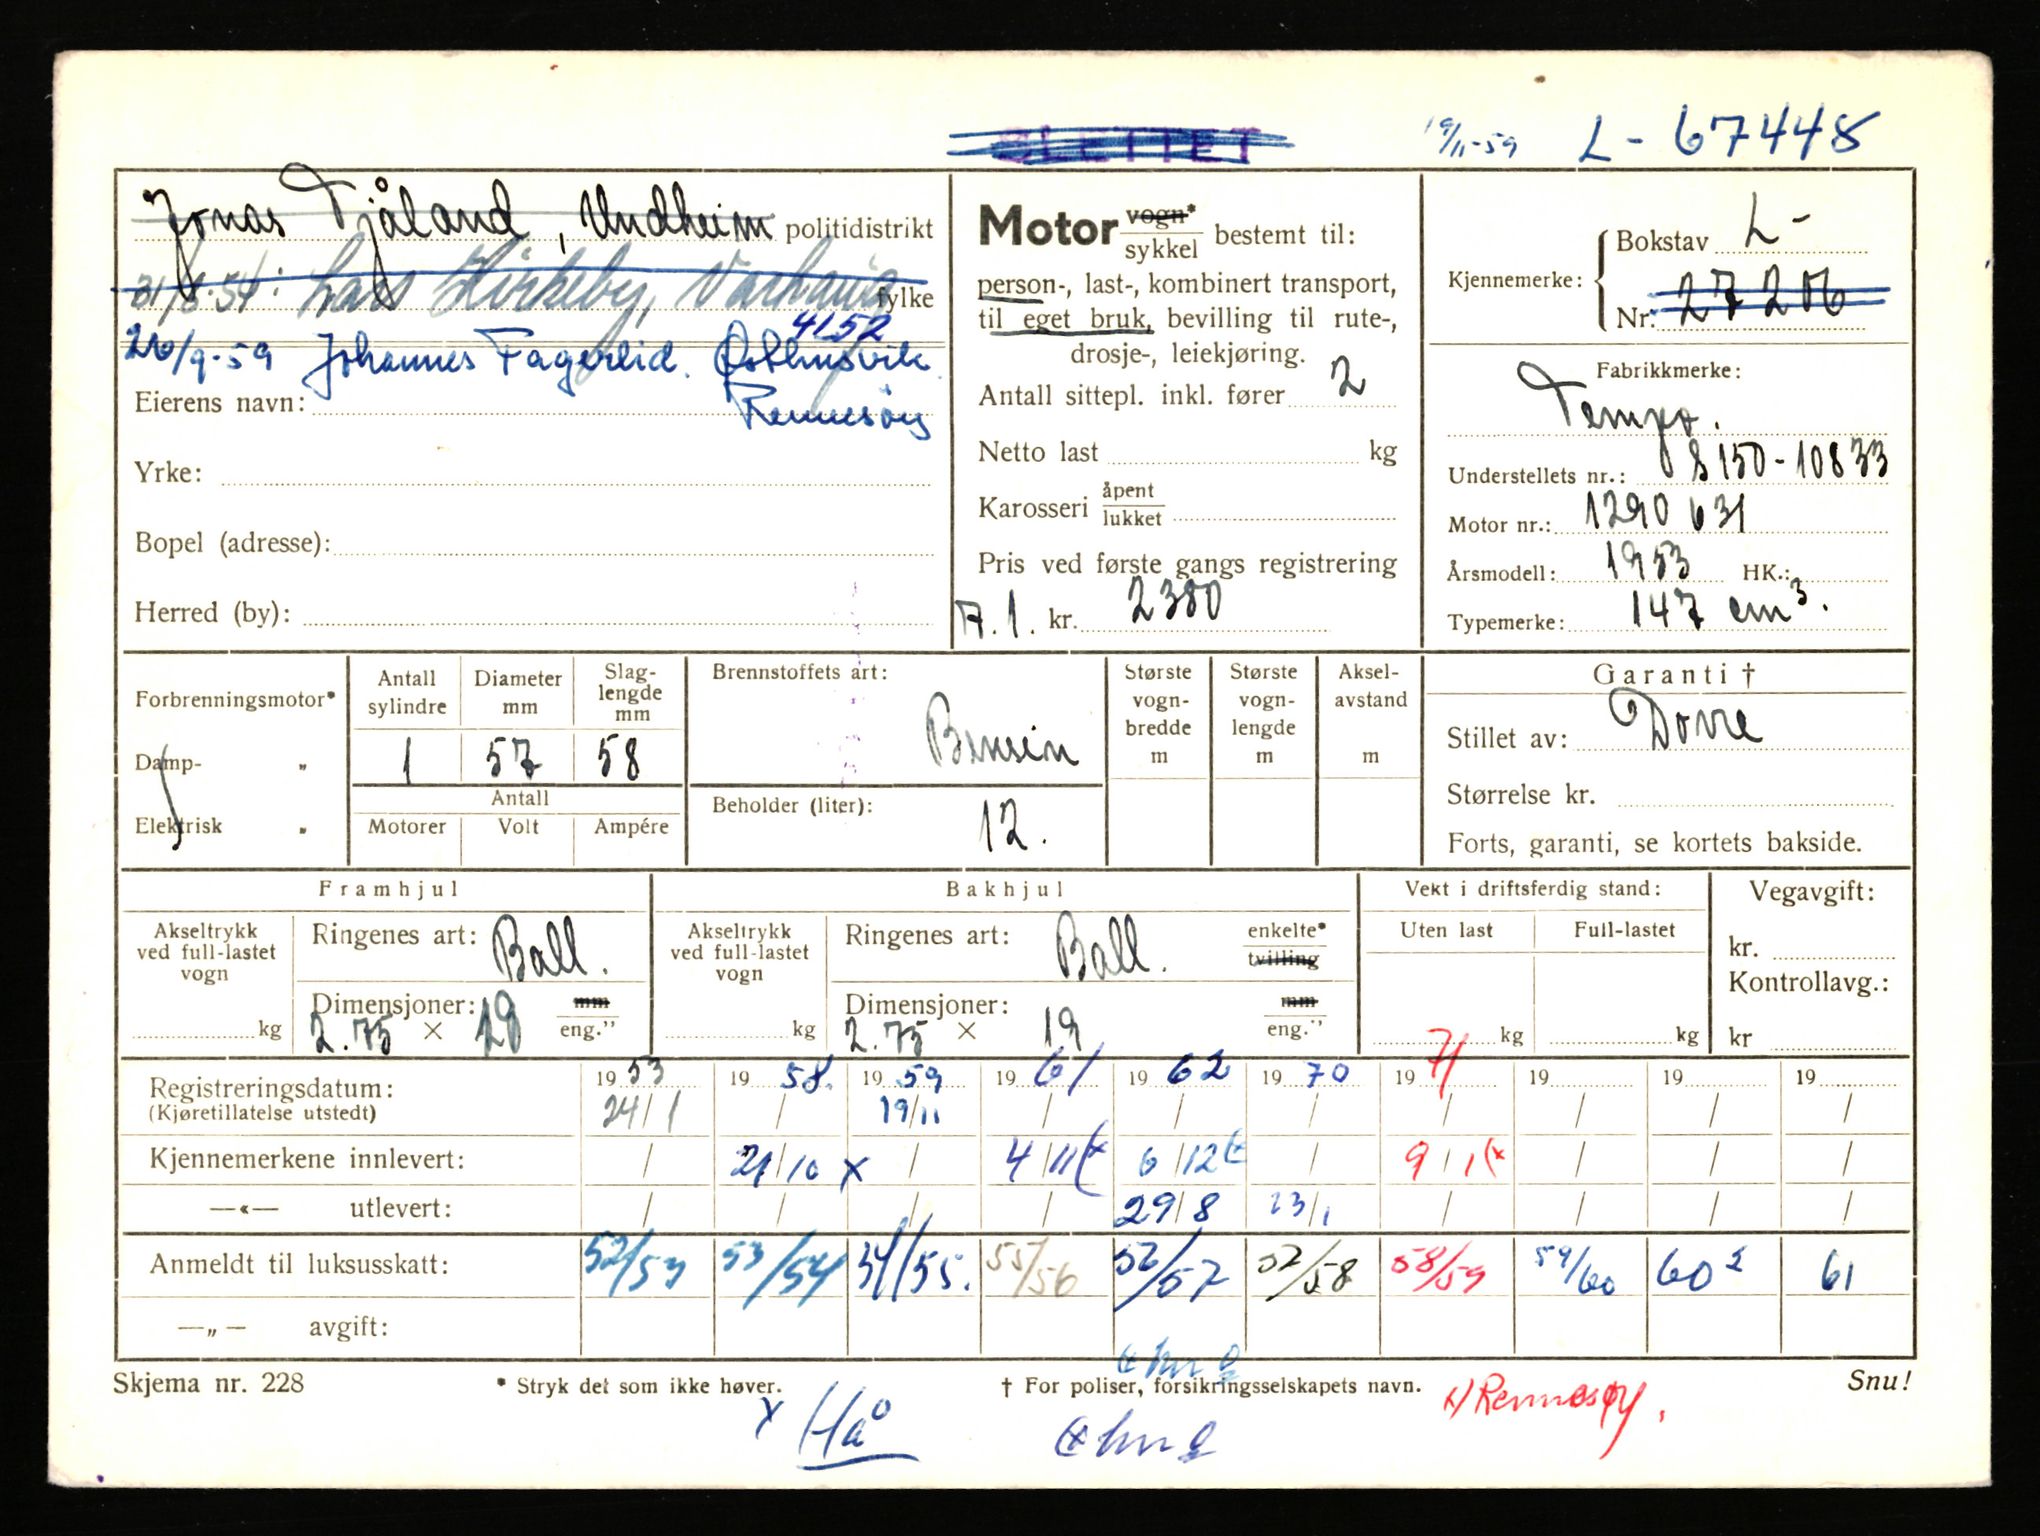 SLETTET 19/11-59 L-67448
Jonas Tjåland, Undheim politidistrikt
31/8-54: Lars Kirkeby, Varhaug fylke
4152
26/9-59 Johannes Fagereid. Østhusvik.
Eierens navn: Rennesøy
Yrke:
Bopel (adresse):
Herred (by):
Motor vogn* sykkel bestemt til:
person-, last-, kombinert transport,
til eget bruk, bevilling til rute-,
drosje-, leiekjøring.
Antall sittepl. inkl. fører 2
Netto last kg
Karosseri åpent lukket
Pris ved første gangs registrering
A.1. kr. 2380
Kjennemerke: Bokstav L-
Nr. 27206
Fabrikkmerke:
Tempo.
Understellets nr.: S150-10833
Motor nr.: 1290631
Årsmodell: 1953 HK.:
Typemerke: 147 cm³.
Forbrenningsmotor*
Damp- „
Elektrisk „
Antall sylindre
Diameter mm
Slag-lengde mm
1 57 58
Antall
Motorer Volt Ampére
Brennstoffets art:
Bensin
Beholder (liter):
12.
Største vogn-bredde m
Største vogn-lengde m
Aksel-avstand m
Garanti †
Stillet av: Dovre
Størrelse kr.
Forts, garanti, se kortets bakside.
Framhjul
Akseltrykk ved full-lastet vogn
kg
Ringenes art: Ball.
Dimensjoner: mm
2.75 × 19 eng."
Bakhjul
Akseltrykk ved full-lastet vogn
kg
Ringenes art: Ball. enkelte* tvilling
Dimensjoner: mm
2.75 × 19 eng."
Vekt i driftsferdig stand:
Uten last Full-lastet
kg kg
Vegavgift:
kr.
Kontrollavg.:
kr
Registreringsdatum: 1953 19 58. 19 59 19 61 19 62 19 70 19 71 19 19 19
(Kjøretillatelse utstedt) 24/1 / 19/11 / / / / / / /
Kjennemerkene innlevert: / 21/10 x / 4/11 (x 6/12 (x / 9/1 (x / / /
—«— utlevert: / / / / 29/8 23/1 / / / /
Anmeldt til luksusskatt: 52/53 53/54 54/55. 55/56 52/57 52/58 58/59 59/60 60² 61
—„— avgift:
Skjema nr. 228 * Stryk det som ikke høver. † For poliser, forsikringsselskapets navn. x) Rennesøy. Snu!
x Hå